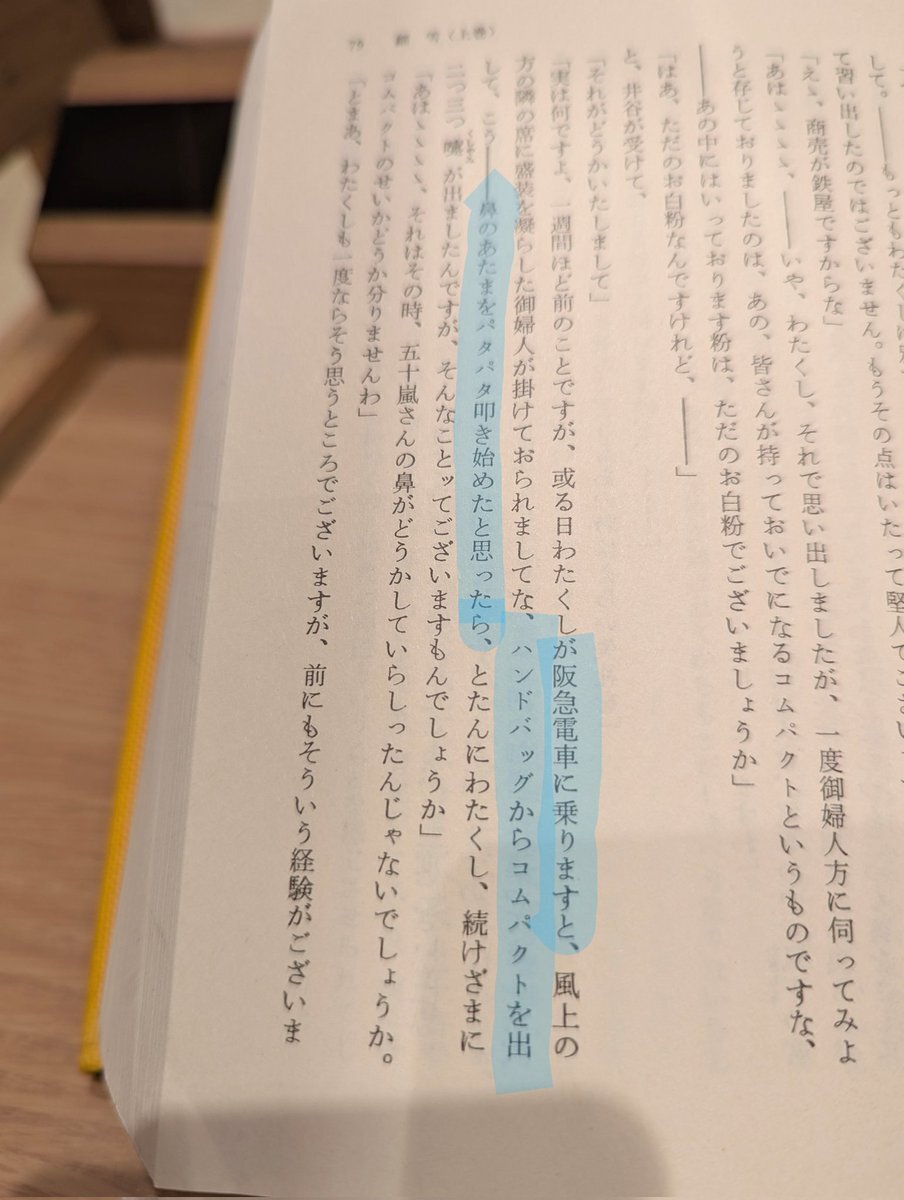 して。――もっともわたくしは
て習い出したのではございません。もうその点はいたって堅人でござい
「えゝ、商売が鉄屋ですからな」
「あはゝゝゝ、――いや、わたくし、それで思い出しましたが、一度御婦人方に伺ってみよ
うと存じておりましたのは、あの、皆さんが持っておいでになるコムパクトというものですな、
――あの中にはいっております粉は、ただのお白粉でございましょうか」
「はあ、ただのお白粉なんですけれど、――」
と、井谷が受けて、
「それがどうかいたしまして」
「実は何ですよ、一週間ほど前のことですが、或る日わたくしが阪急電車に乗りますと、風上の
方の隣の席に盛装を凝らした御婦人が掛けておられましてな、ハンドバッグからコムパクトを出
して、こう――鼻のあたまをパタパタ叩き始めたと思ったら、とたんにわたくし、続けざまに
二つ三つ嚔が出ましたんですが、そんなことッてございますもんでしょうか」
「あはゝゝゝ、それはその時、五十嵐さんの鼻がどうかしていらしったんじゃないでしょうか。
コムパクトのせいかどうか分りませんわ」
「とまあ、わたくしも一度ならそう思うところでございますが、前にもそういう経験がございま
75 細雪(上巻)